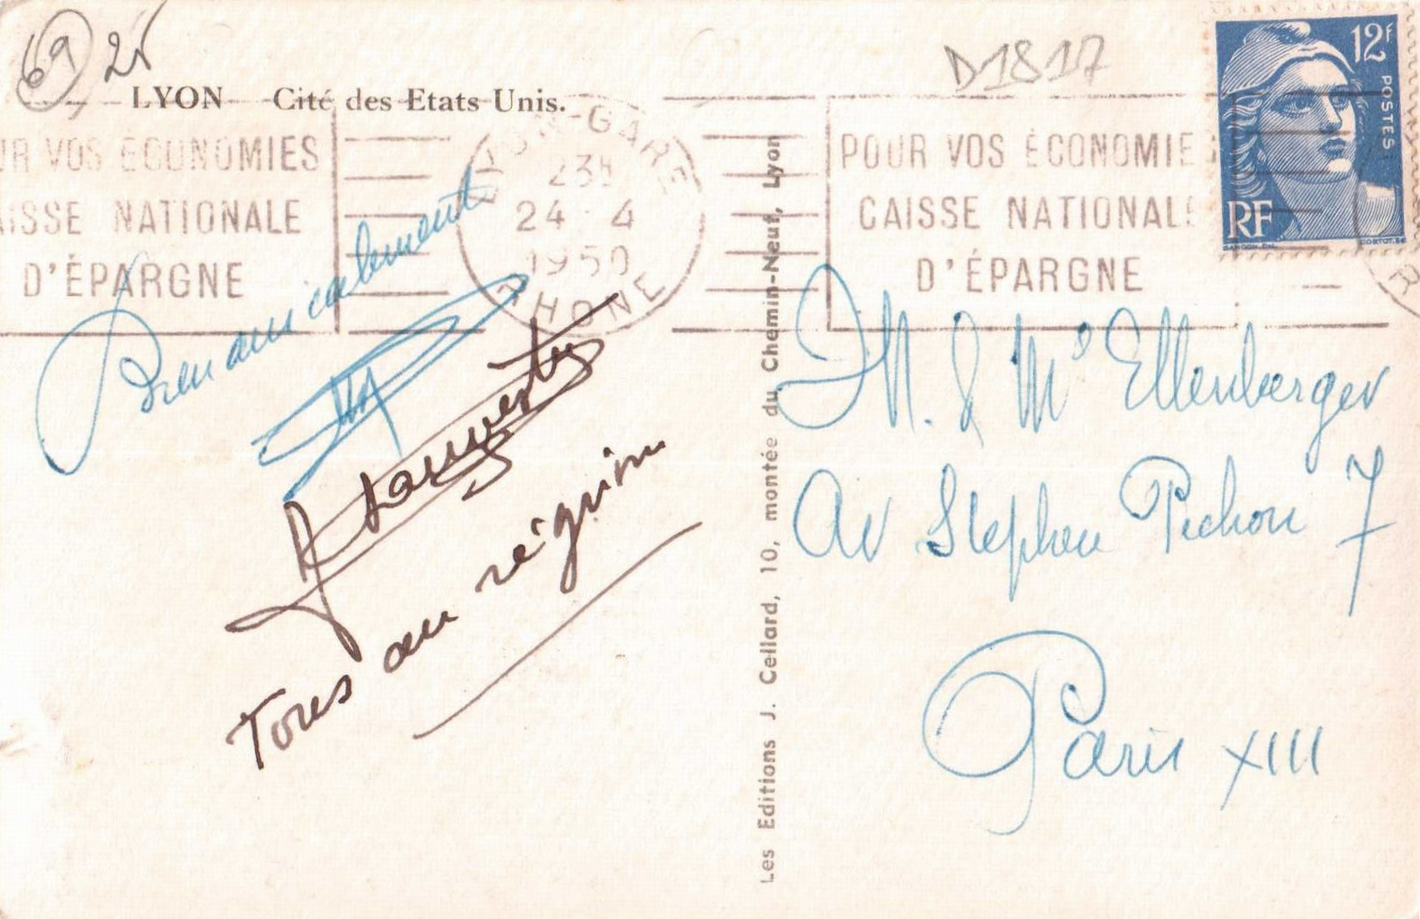 69 2€
LYON Cité des Etats Unis.
D1817
12F
POSTES
RF
LYON-GARE
23H
24 4
1950
RHONE
UR VOS ÉCONOMIES
AISSE NATIONALE
D'ÉPARGNE
POUR VOS ÉCONOMIE
CAISSE NATIONALE
D'ÉPARGNE
Bien amicalement
Tous au réguin
Les Editions J. Cellard, 10, montée du Chemin-Neuf, Lyon
M. & Me Ellenberger
Av Stephen Pichon 7
Paris XIII